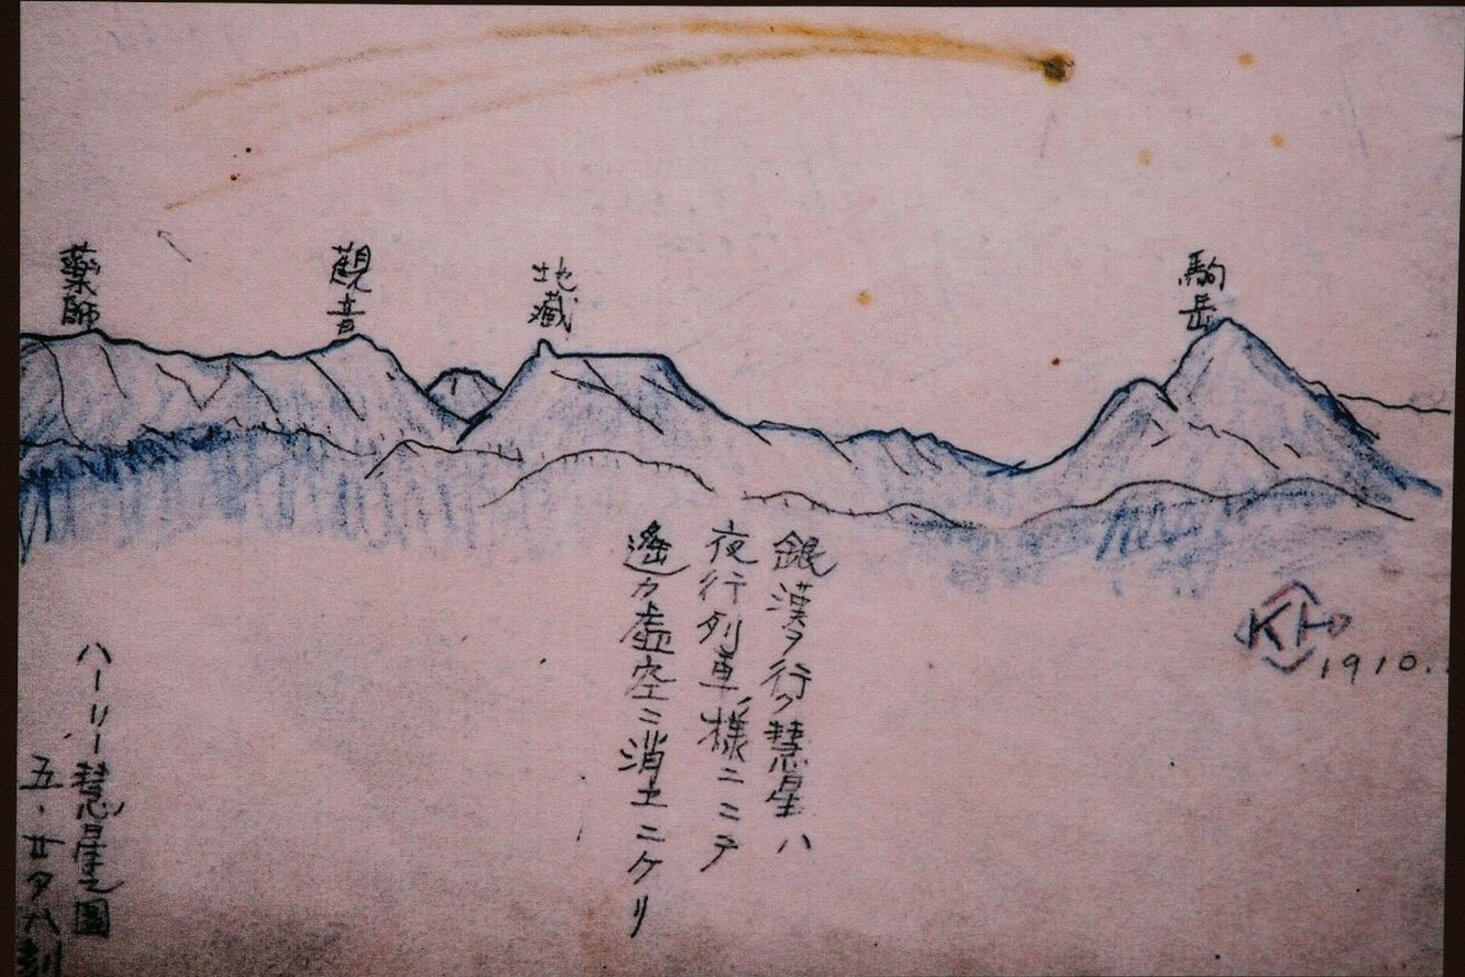 駒岳
地藏
觀音
藥師
銀漢ヲ行ク慧星ハ
夜行列車ノ様ニニテ
遙カ虚空ニ消エニケリ
KH
1910.
ハーリー慧星之圖
五・廿夕八刻